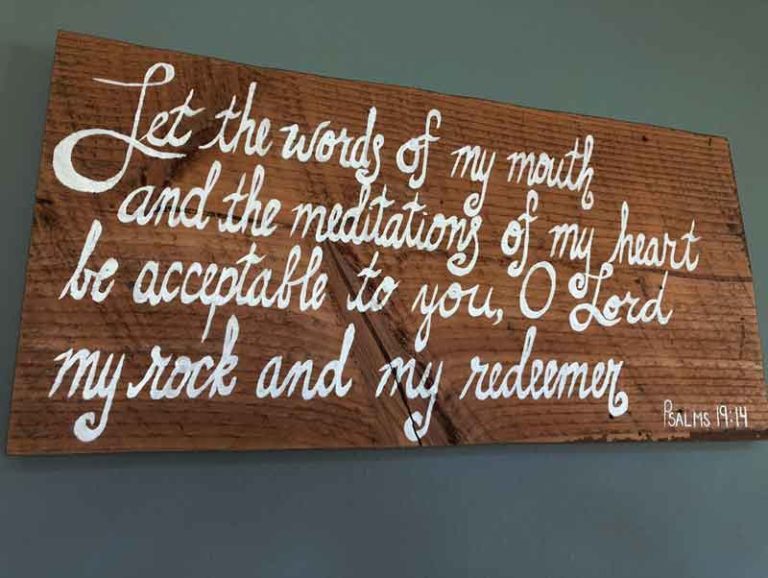 Let the words of my mouth
and the meditations of my heart
be acceptable to you, O Lord
my rock and my redeemer
PSALMS 19:14